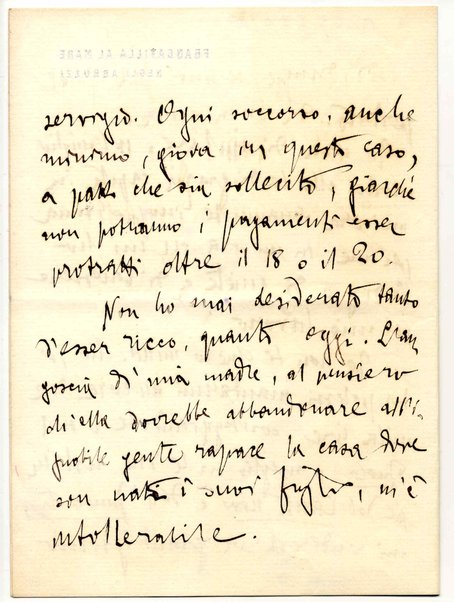 servigio. Ogni soccorso, anche
minimo, giova in questo caso,
a patto che sia sollecito, giacché
non potranno i pagamenti esser
protratti oltre il 18 o il 20.
Non ho mai desiderato tanto
d'esser ricco, quanto oggi. L'an
goscia di mia madre, al pensiero
ch'ella dovrebbe abbandonare all'i-
gnobile gente rapace la casa dove
son nati i suoi figli, m'è
intollerabile.